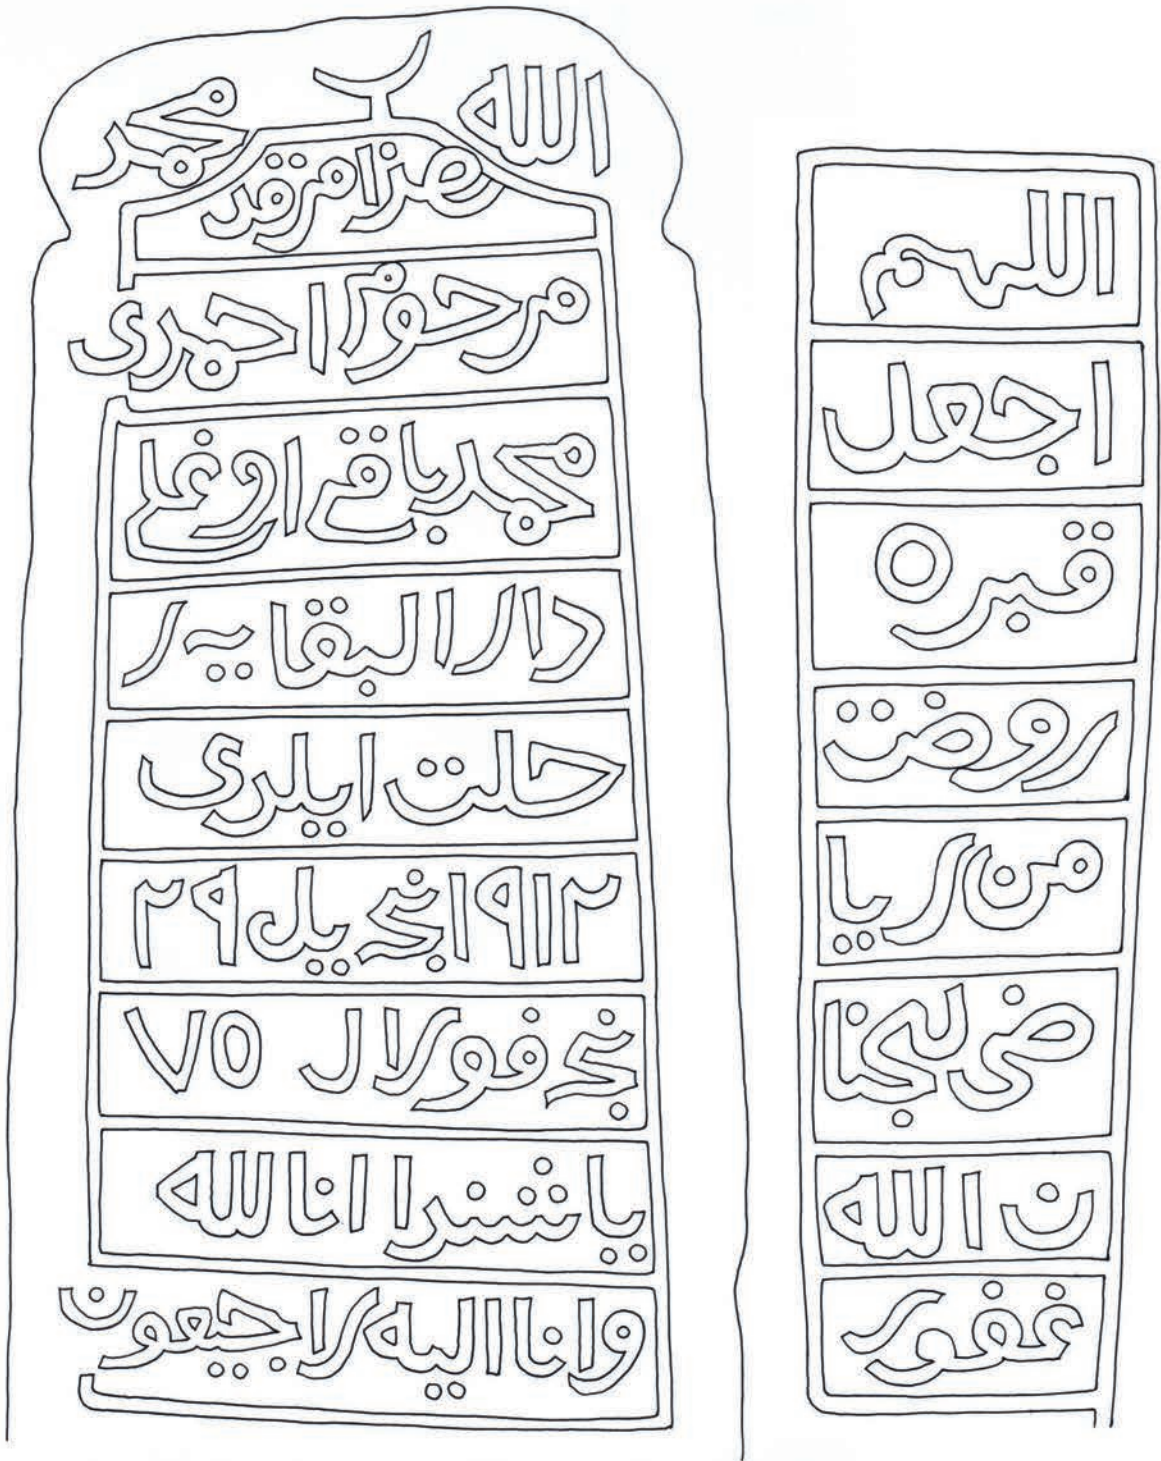 الله محمد
هزا مرقد
مرحوم احمدى
محمد باقى اوغلى
دار البقا يه ر
حلت ايلدى
١٩١٢ نجى يل ٢٩
نجى فورال ٧٥
ياشندا انالله
وانا اليه راجيعون
اللهم
اجعل
قبره
روضت
من ريا
ضى لجنا
ن الله
غفور